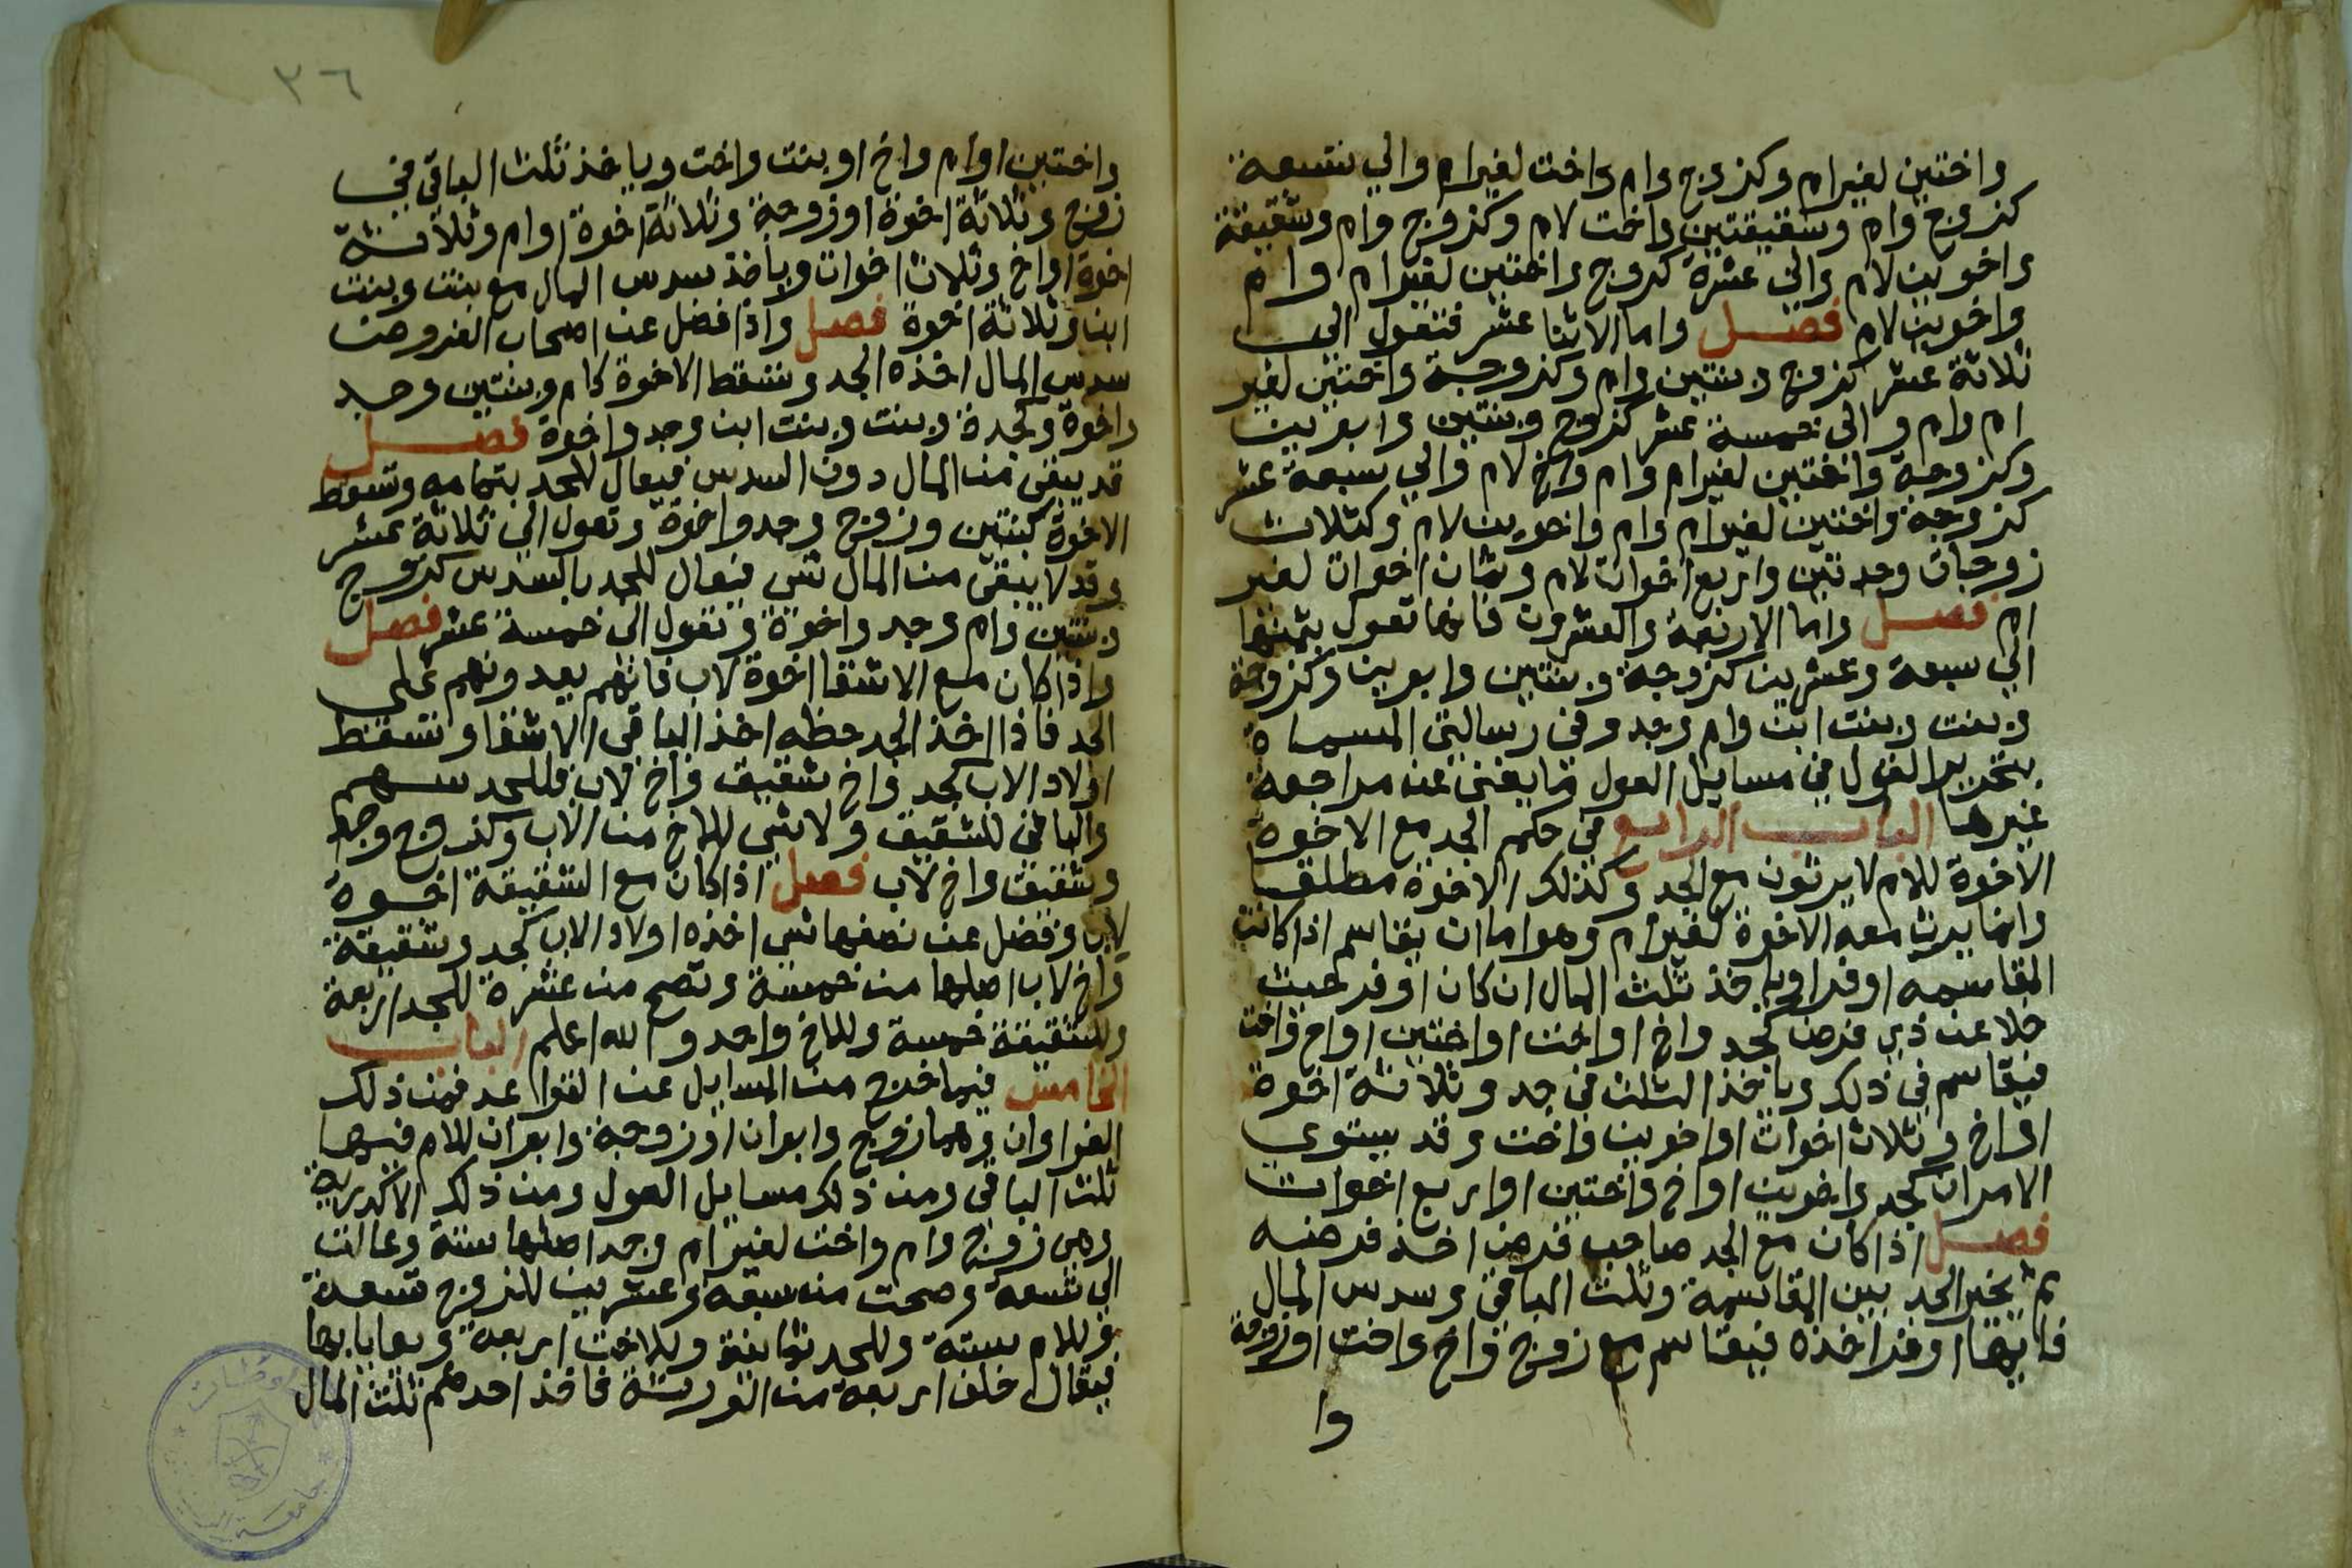 واختين لغير ام وكزوج وام واخت لغير ام والي تسعة
كزوج وام وشقيقتين واخت لام وكزوج وام وشقيقة
واخوين لام والي عشرة كزوج واختين لغير ام وام
واخوين لام فصل واما الاثنا عشر فتعول الي
ثلاثة عشر كزوج وبنتين وام وكزوجة واختين لغير
ام وام والي خمسة عشر كزوج وبنتين وابوين
وكزوجة واختين لغير ام وام واخ لام والي سبعة عشر
كزوجة واختين لغير ام وام واخوين لام وكثلاث
زوجات وجدتين واربع اخوات لام وثمان اخوات لغير
ام فصل واما الاربعة والعشرون فانها تعول بثمنها
الي سبعة وعشرين كزوجة وبنتين وابوين وكزوجة
وبنت وبنت ابن وام وجد وفي رسالتي المسماة
بتحرير القول في مسايل العول ما يغني عن مراجعة
غيرها الباب الرابع في حكم الجد مع الاخوة
الاخوة للام لا يرثون مع الجد وكذلك الاخوة مطلقا
وانما يرث معه الاخوة لغير ام وهو اما ان يقاسم اذا كانت
المقاسمه اوفر او ياخذ ثلث المال ان كان اوفر حيث
خلا عن ذي فرض كجد واخ او اخت او اختين او اخ واخت
فيقاسم في ذلك وياخذ الثلث في جد وثلاثة اخوة
او اخ وثلاث اخوات او اخوين واخت وقد يستوي
الامران كجد واخوين او اخ واختين او اربع اخوات
فصل اذا كان مع الجد صاحب فرض اخذ فرضه
ثم يخير الجد بين المقاسمة وثلث الباقي وسدس المال
فايها اوفر اخذه فيقاسم مع زوج واخ واخت او زوجة
وا
٣٦
واختين او ام واخ او بنت واخت وياخذ ثلث الباقي في
زوج وثلاثة اخوة او زوجة وثلاثة اخوة او ام وثلاثة
اخوة او اخ وثلاث اخوات وياخذ سدس المال مع بنت وبنت
ابن وثلاثة اخوة فصل واذا فضل عن اصحاب الفروض
سدس المال اخذه الجد وتسقط الاخوة كام وبنتين وجد
واخوة وكجدة وبنت وبنت ابن وجد واخوة فصل
قد يبقي من المال دون السدس فيعال للجد بتمامه وتسقط
الاخوة كبنتين وزوج وجد واخوة وتعول الي ثلاثة عشر
وقد لا يبقي من المال شي فيعال للجد بالسدس كزوج
وبنتين وام وجد واخوة وتعول الي خمسة عشر فصل
واذا كان مع الاشقا اخوة لاب فانهم يعدونهم علي
الجد فاذا اخذ الجد حظه اخذ الباقي الاشقا وتسقط
اولاد الاب كجد واخ شقيق واخ لاب فللجد سهم
والباقي للشقيق ولا شي للاخ من الاب وكزوج وجد
وشقيق واخ لاب فصل اذا كان مع الشقيقة اخوة
لاب وفضل عن نصفها شي اخذه اولاد الاب كجد وشقيقة
واخ لاب اصلها من خمسة وتصح من عشرة للجد اربعة
وللشقيقة خمسة وللاخ واحد والله اعلم الباب
الخامس فيما خرج من المسايل عن القواعد فمن ذلك
الغراوان وهما زوج وابوان او زوجة وابوان للام فيهما
ثلث الباقي ومن ذلك مسايل العول ومن ذلك الاكدرية
وهي زوج وام واخت لغير ام وجد اصلها ستة وعالت
الي تسعة وصحت من سبعة وعشرين للزوج تسعة
وللام ستة وللجد ثمانية وللاخت اربعة ويعايا بها
فيقال خلف اربعة من الورثة فاخذ احدهم ثلث المال